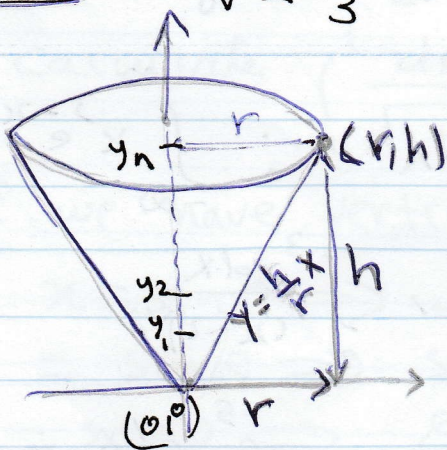 3
r
yn
(r,h)
h
y2
y1
y = h/r x
(0,0)
r